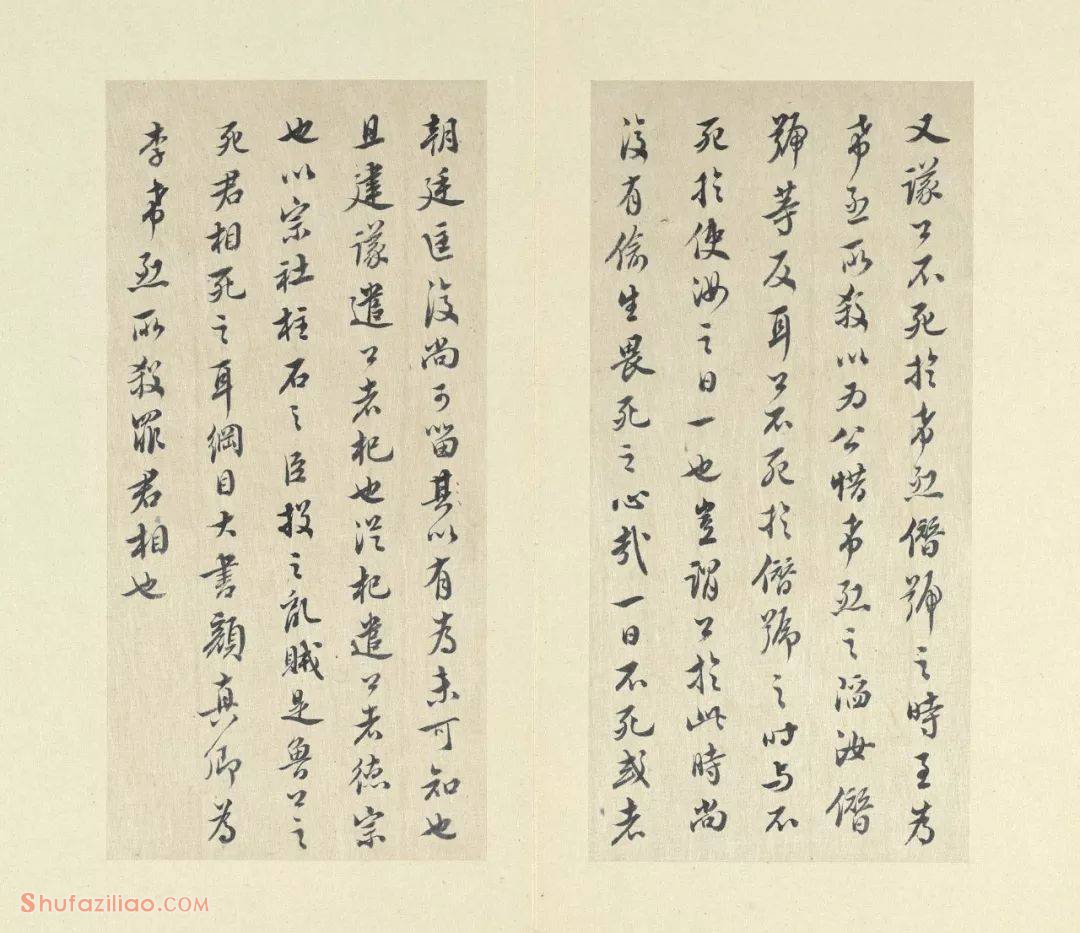 又議公不死於希烈僭號之時至為
希烈所殺以為公惜希烈之陷汝僭
號等反耳公不死於僭號之時与不
死於使汝之日一也豈謂公於此時尚
復有偷生畏死之心哉一日不死或者
朝廷匡復尚可留其以有為未可知也
且建議遣公者杞也從杞遣公者德宗
也以宗社柱石之臣投之亂賊是魯公之
死君相死之耳綱目大書顏真卿為
李希烈所殺罪君相也
Shufaziliao.COM